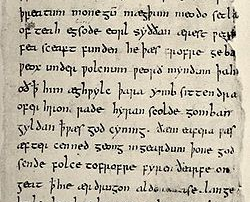 þreatum monegū mægþum meodo setla
of teah egsode eorl syððan ærest ƿear
fea sceaft funden he þæs frofre geba
ƿeox under ƿolcnum ƿeorð myndum þah
oð ꝥ him æghƿylc þara ymb sittendra
ofer hron rade hyran scolde gomban
gyldan ꝥ ƿæs god cyning. ðæm eafera ƿæs
æfter cenned geong ingeardum þone god
sende folce tofrofre fyren ðearfe on
geat ꝥ hie ær drugon aldor ase. lange